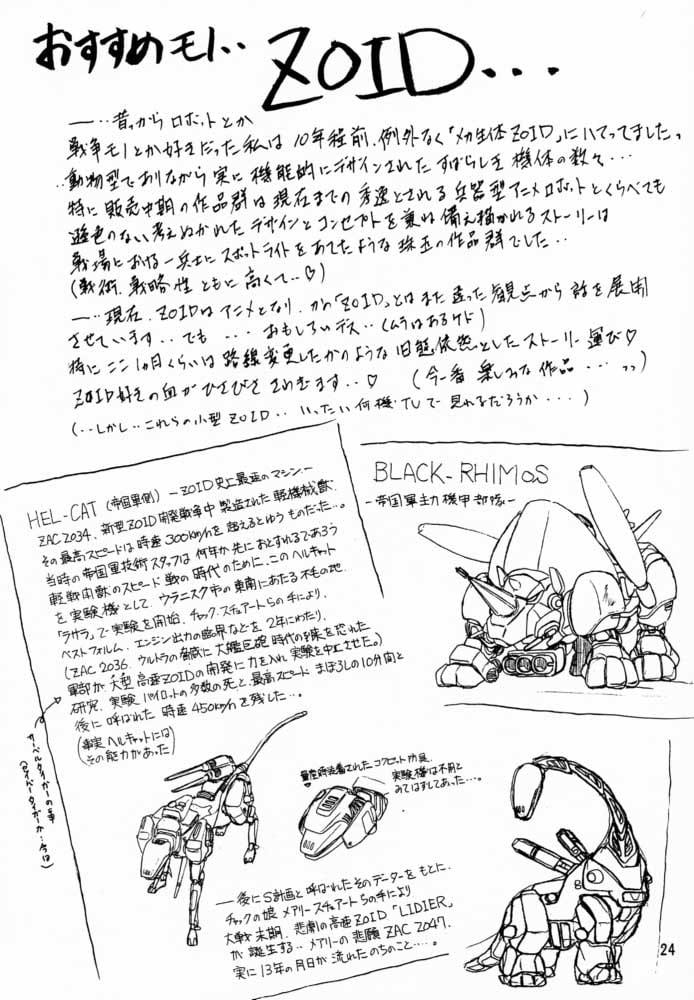 おすすめモノ‥ ZOID...
―‥昔っからロボットとか
戦争モノとか好きだった私は10年程前、例外なく「メカ生体ZOID」にハマってましたっ
‥動物型でありながら実に機能的にデザインされたすばらしき機体の数々…
特に販売中期の作品群は現在までの秀逸とされる兵器型アニメロボットとくらべても
遜色のない考えぬかれたデザインとコンセプトを兼ね備え描かれるストーリーは
戦場における一兵士にスポットライトをあてたような珠玉の作品群でした‥
(戦術、戦略性ともに高くて‥♡)
―‥現在、ZOIDはアニメとなり、かの「ZOID」とはまた違った観点から話を展開
させています‥でも…おもしろいデス‥(ムラはあるケド)
特にここ1ヵ月くらいは路線変更したかのような旧態依然としたストーリー運び♡
ZOID好きの血がひさびささわぎます‥♡ (今一番楽しみな作品…っっ)
(‥しかし‥これらの小型ZOID‥いったい何機TVで見れるだろうか…)
HEL-CAT (帝国軍側) ―ZOID史上最速のマシン―
ZAC2034、新型ZOID開発戦争中製造された軽機械獣、
その最高スピードは時速300km/hを超えるとゆうものだった…。
当時の帝国軍技術スタッフは何年か先におとずれるであろう
軽戦闘獣のスピード戦の時代のために、このヘルキャット
を実験機として、ウラニスク市の東南にあたる不毛の地、
「ラサラ」で実験を開始、チャック・スチュアートらの手により、
ベストフォルム、エンジン出力の臨界などを2年にわたり、
(ZAC2036、ウルトラの脅威に大艦巨砲時代の到来を恐れた
軍部が大型高速ZOIDの開発に力を入れ実験を中止させた。)
研究、実験パイロットの多数の死と、最高スピードまぼろしの10分間と
後に呼ばれた時速450km/hを残した…。
(事実ヘルキャットには
その能力があった)
サーベルタイガーの事
(セイバータイガーか…今は)
BLACK-RHIMOS
―帝国軍主力機甲部隊―
量産時装着されたコクピット防具、
実験機は不用と
みてはずしてあった…。
―後にS計画と呼ばれたそのデーターをもとに、
チャックの娘メアリー・スチュアートらの手により
大戦末期、悲劇の高速ZOID「LIDIER」
が誕生する‥メアリーの悲願ZAC2047、
実に13年の月日が流れたのちのこと…。
24